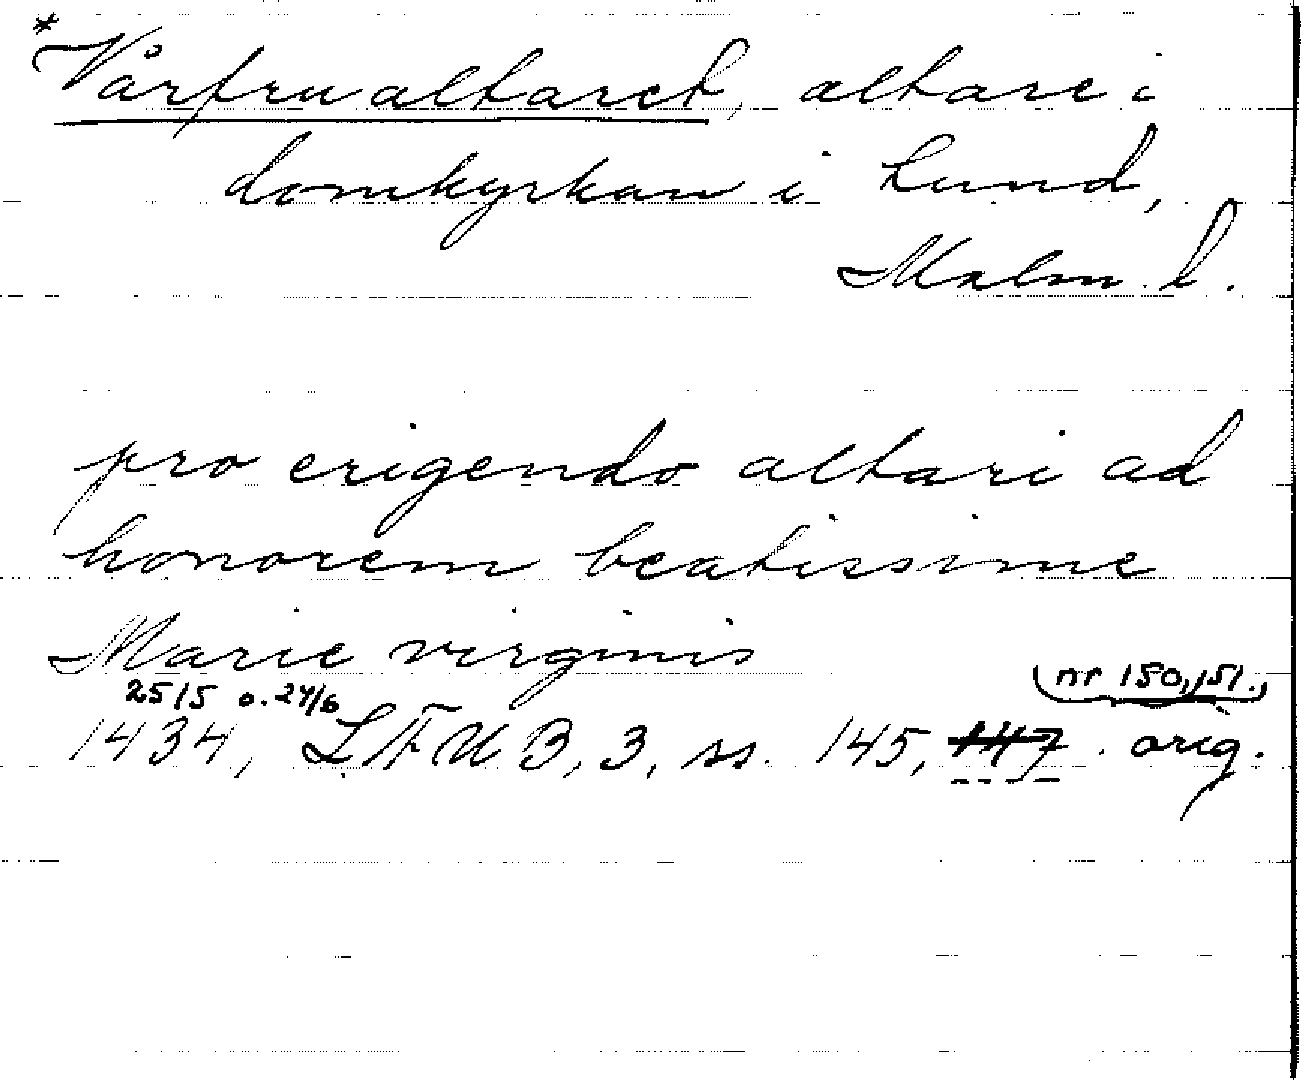 *Vårfrualtaret, altare i
domkyrkan i Lund,
Malm. l.
pro erigendo altari ad
honorem beatissime
Marie virginis
25/5 o. 24/6 nr 150, 151.
1434, LÄUB, 3, ss. 145, 147. orig.